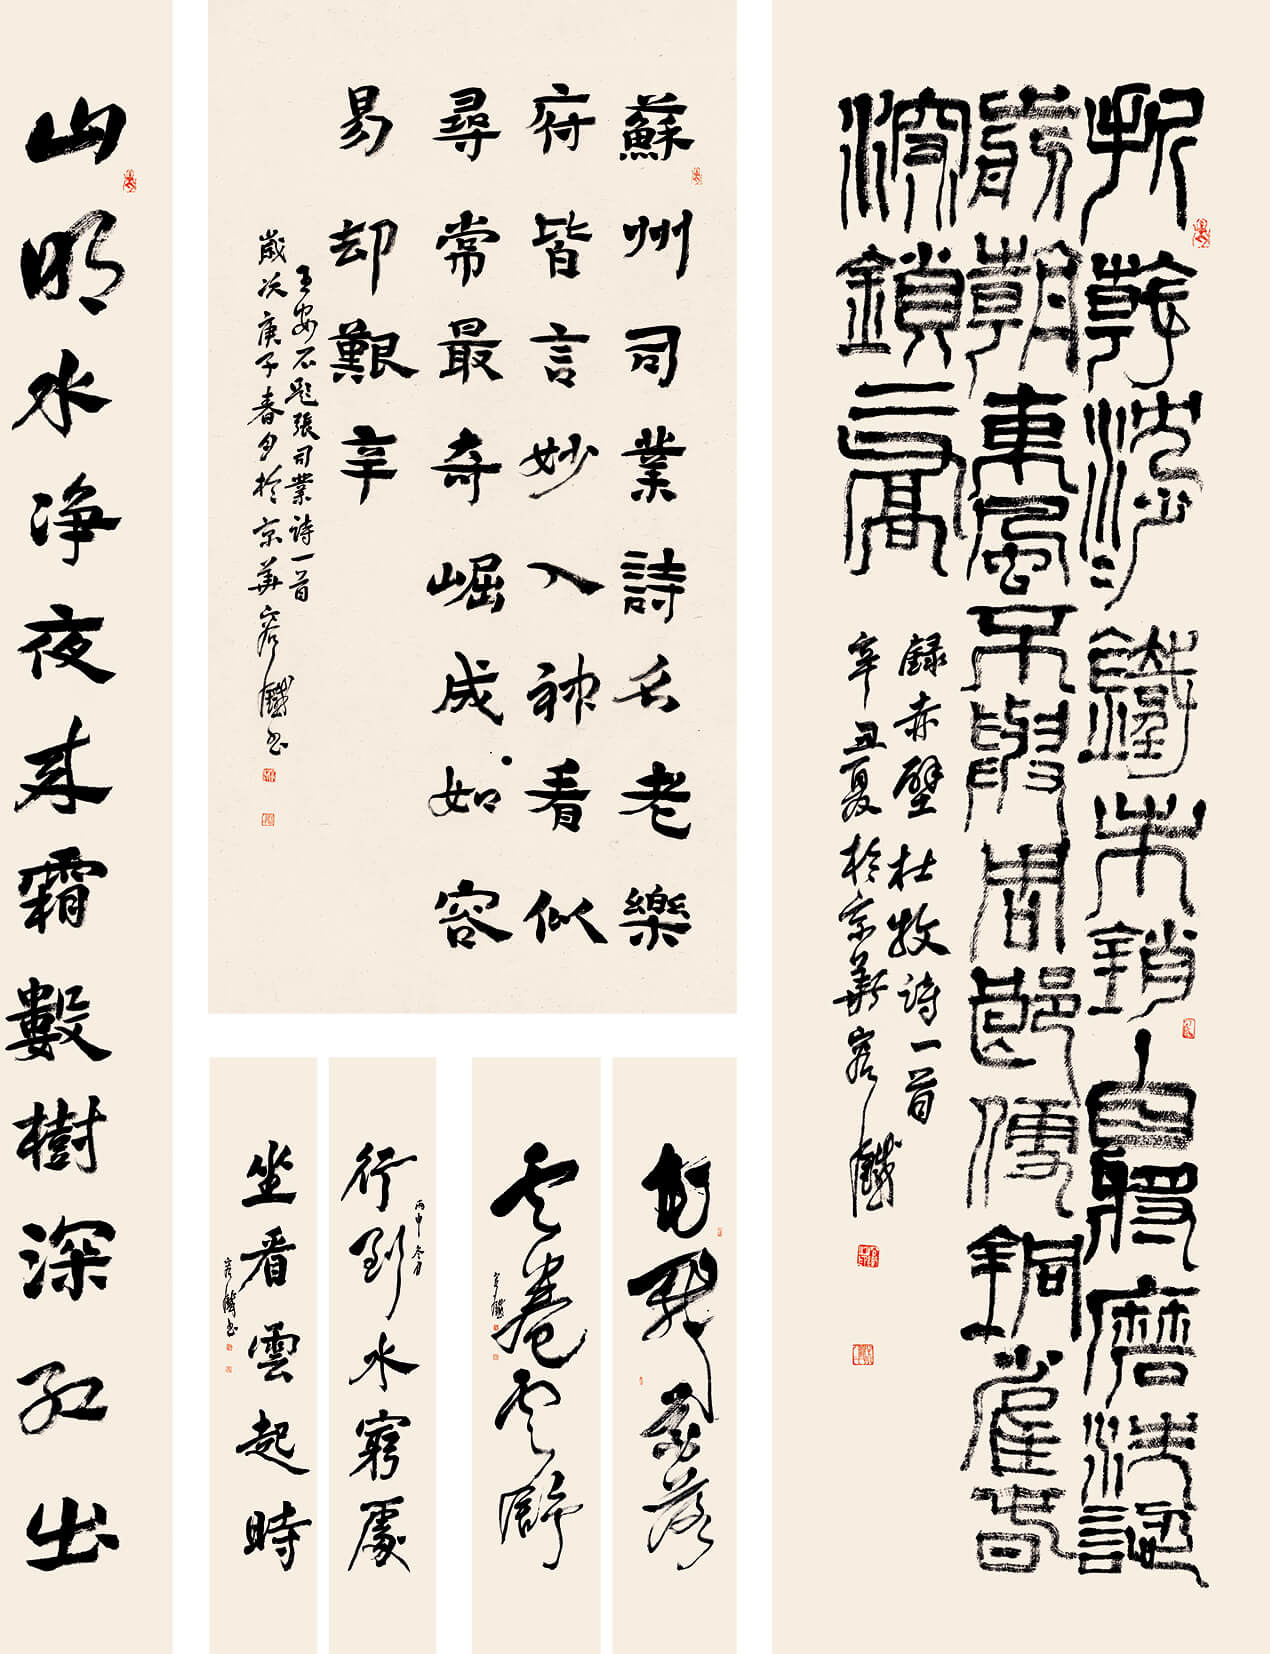 折戟沈沙鐵未銷自將磨洗認
前朝東風不與周郎便銅雀春
深鎖二喬
録赤壁杜牧诗一首
辛丑夏於京華容鐵
蘇州司業詩名老樂
府皆言妙入神看似
尋常最奇崛成如容
易却艱辛
王安石题張司業诗一首
歲次庚子春月於京華容鐵书
花开花落
云卷云舒
容鐵
丙申冬月
行到水窮處
坐看雲起時
容鐵书
山明水净夜来霜數樹深红出